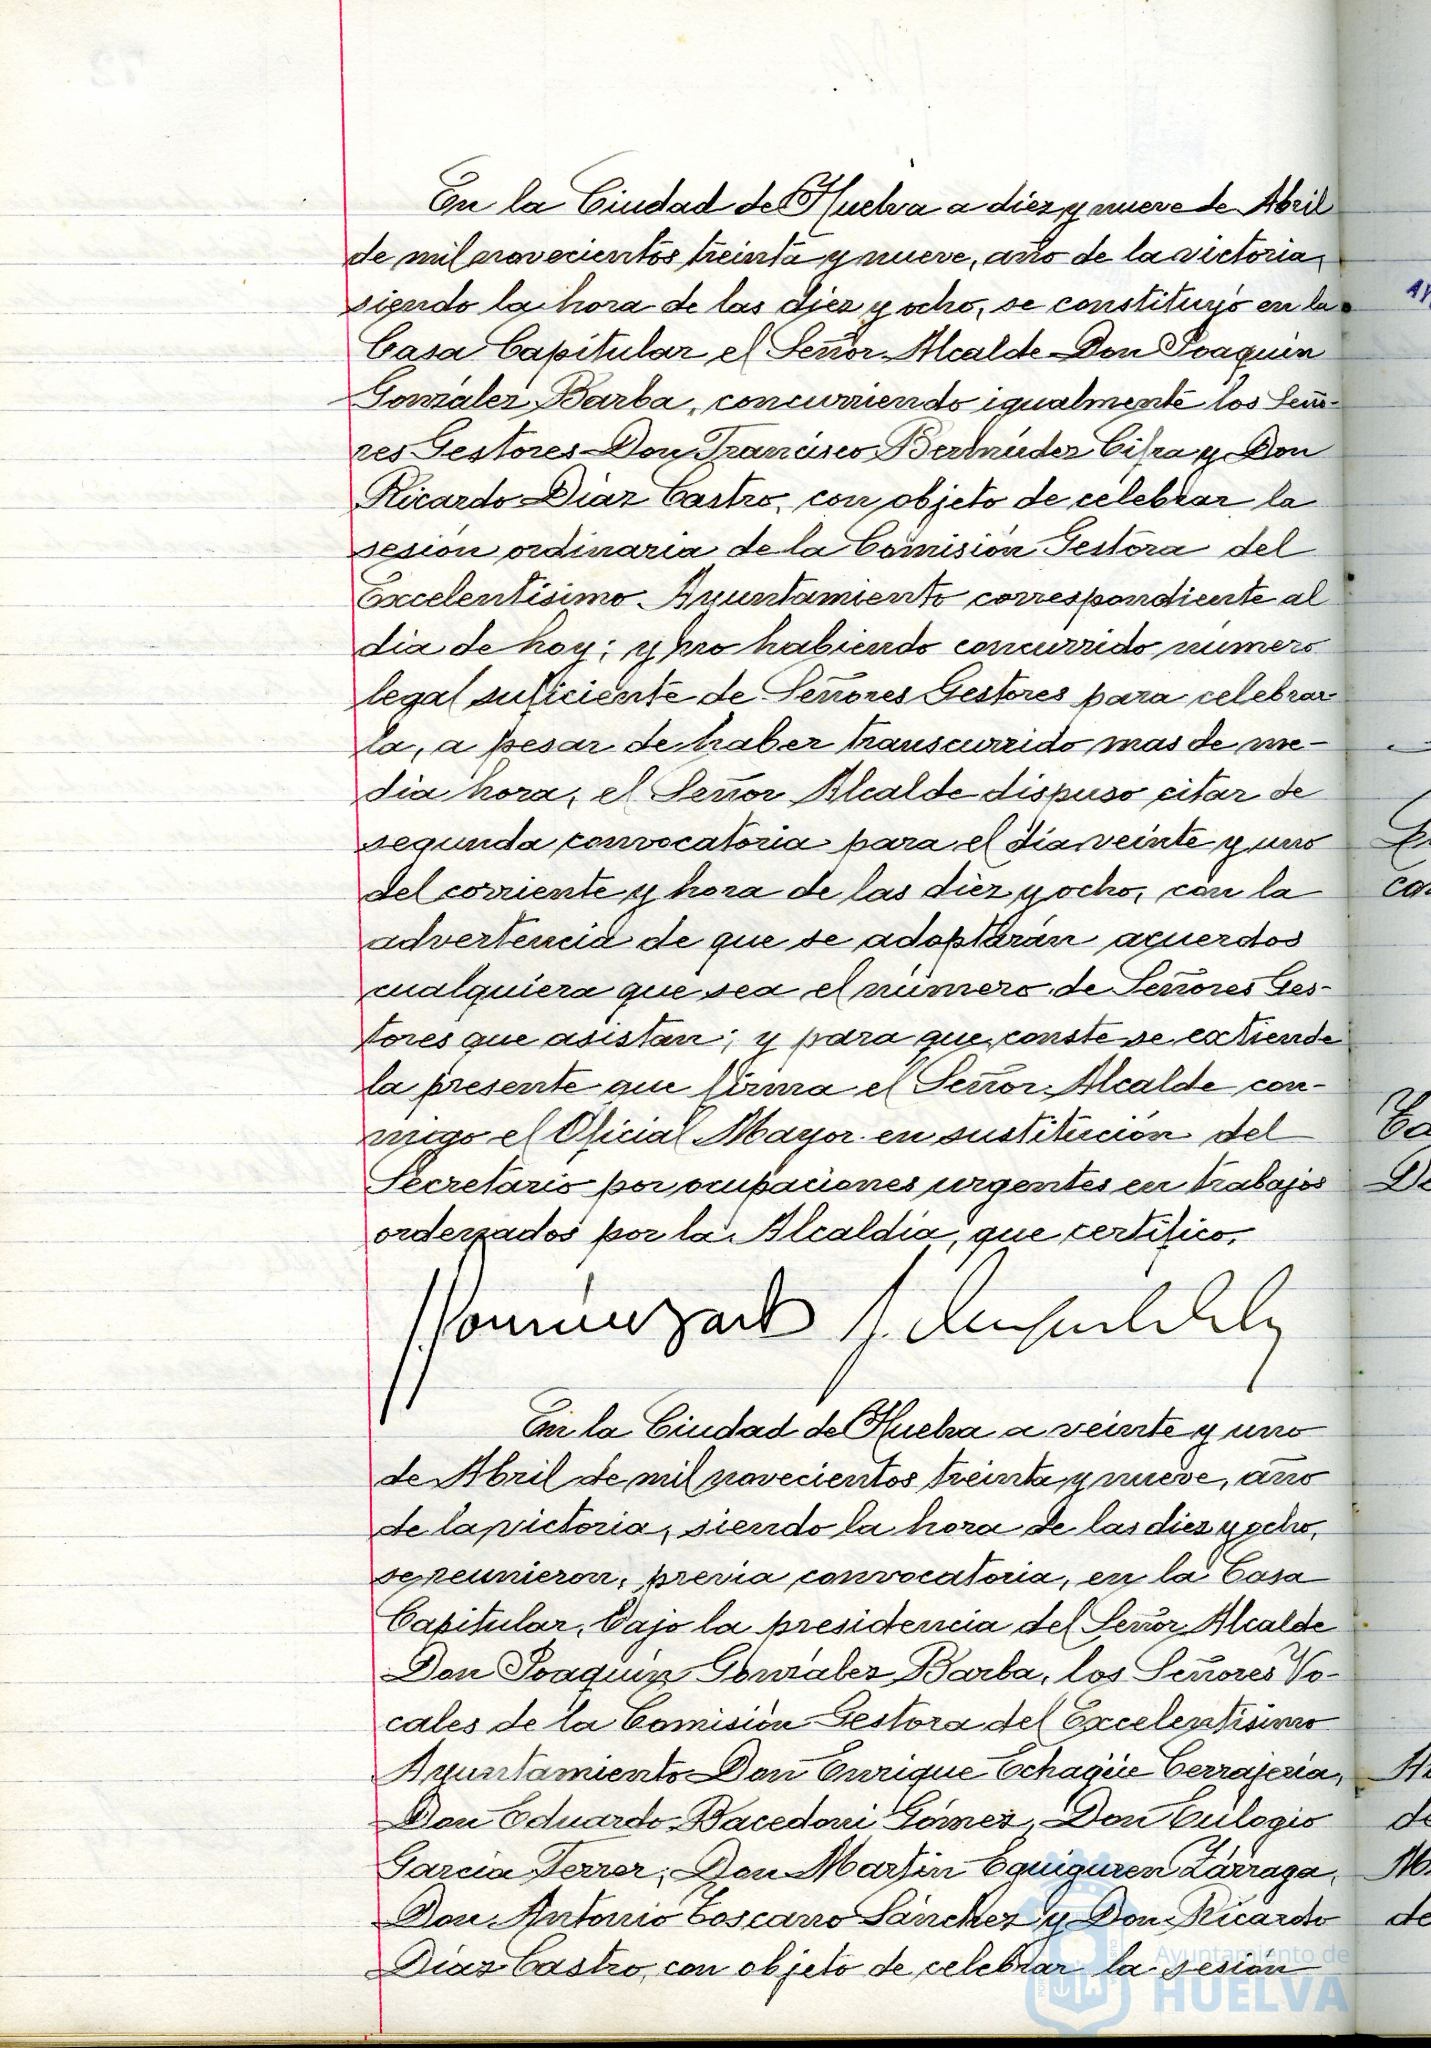 En la Ciudad de Huelva a diez y nueve de Abril
de mil novecientos treinta y nueve, año de la victoria,
siendo la hora de las diez y ocho, se constituyó en la
Casa Capitular el Señor Alcalde Don Joaquín
González Barba, concurriendo igualmente los Seño-
res Gestores Don Francisco Bermúdez Cifra y Don
Ricardo Díaz Castro, con objeto de celebrar la
sesión ordinaria de la Comisión Gestora del
Excelentísimo Ayuntamiento correspondiente al
día de hoy; y no habiendo concurrido número
legal suficiente de Señores Gestores para celebrar-
la, a pesar de haber transcurrido mas de me-
dia hora, el Señor Alcalde dispuso citar de
segunda convocatoria para el día veinte y uno
del corriente y hora de las diez y ocho, con la
advertencia de que se adoptarán acuerdos
cualquiera que sea el número de Señores Ges-
tores que asistan; y para que conste se extiende
la presente que firma el Señor Alcalde con-
migo el Oficial Mayor en sustitución del
Secretario por ocupaciones urgentes en trabajos
ordenados por la Alcaldía, que certifico.
En la Ciudad de Huelva a veinte y uno
de Abril de mil novecientos treinta y nueve, año
de la victoria, siendo la hora de las diez y ocho,
se reunieron, previa convocatoria, en la Casa
Capitular, bajo la presidencia del Señor Alcalde
Don Joaquín González Barba, los Señores Vo-
cales de la Comisión Gestora del Excelentísimo
Ayuntamiento Don Enrique Echagüe Cerrajería,
Don Eduardo Bacedoni Gómez, Don Eulogio
García Ferrer, Don Martín Eguiguren Zárraga,
Don Antonio Toscano Sánchez y Don Ricardo
Díaz Castro, con objeto de celebrar la sesión
Ayuntamiento de
HUELVA